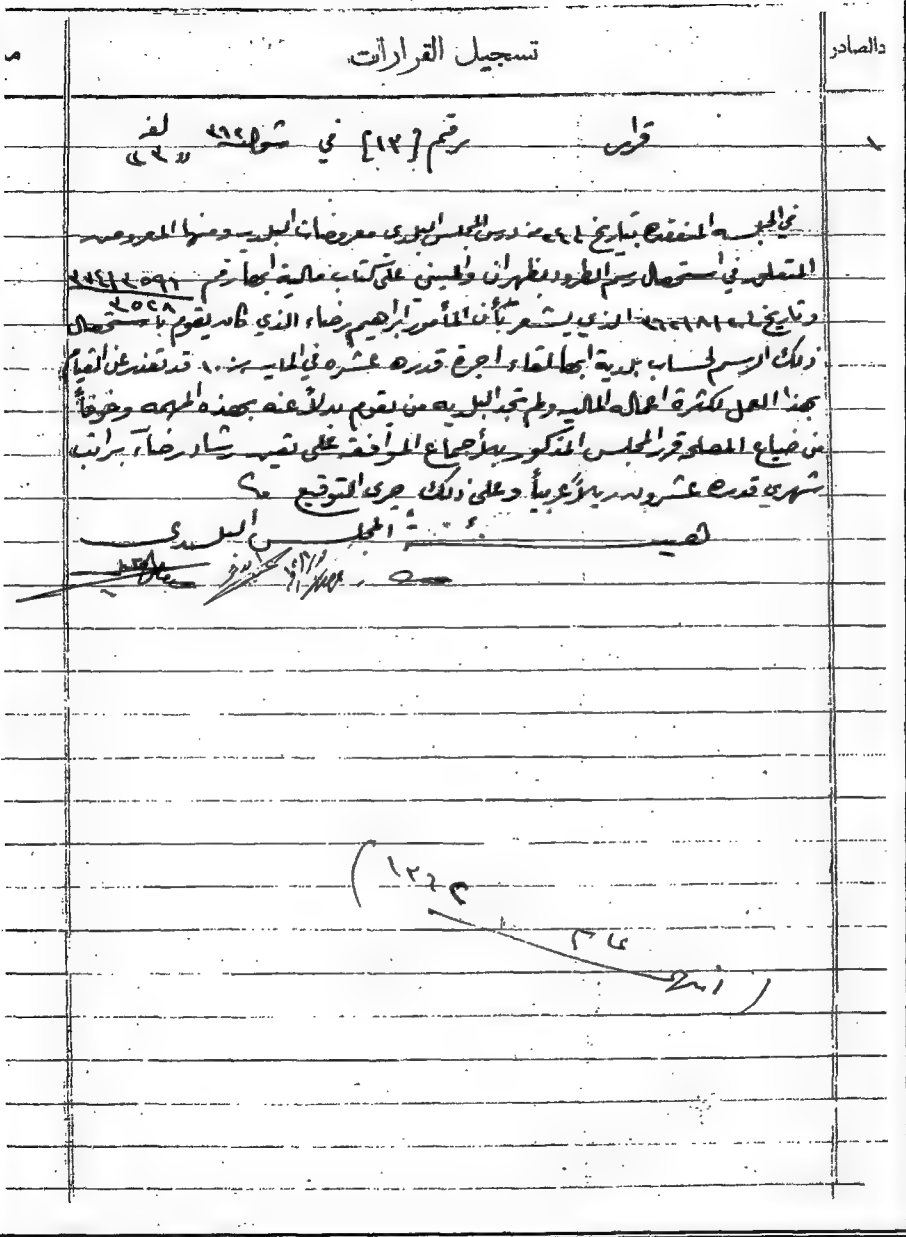 دالصادر
تسجيل القرارات
١
قرار رقم [١٣] في شوال ٣٦٢ لغر
في الجلسة المنعقدة بتاريخ درس المجلس البلدي معروضات البلدية ومنها المعروض
المتعلق في استحصال رسم الطرود بظهران والمبني على كتاب مالية ابها رقم
٣٥٢٨
وتاريخ الذي يشعر بأن المأمور ابراهيم رضاء الذي كان يقوم بأستحصال
ذلك الرسم لحساب بلدية ابها لقاء اجرة قدره عشره في المايه ١٠ قد تعذر عن القيام
بهذا العمل لكثرة اعماله الماليه ولم تجد البلديه من يقوم بدلاً عنه بهذه المهمه وخوفاً
من ضياع المصلحه قرر المجلس المذكور بالأجماع الموافقه على تعيين رشاد رضاء براتب
شهري قدره عشرون ريالاً عربياً وعلى ذلك جرى التوقيع
هيئة المجلس البلدي
(١٣٦٢
عام
انتهى)